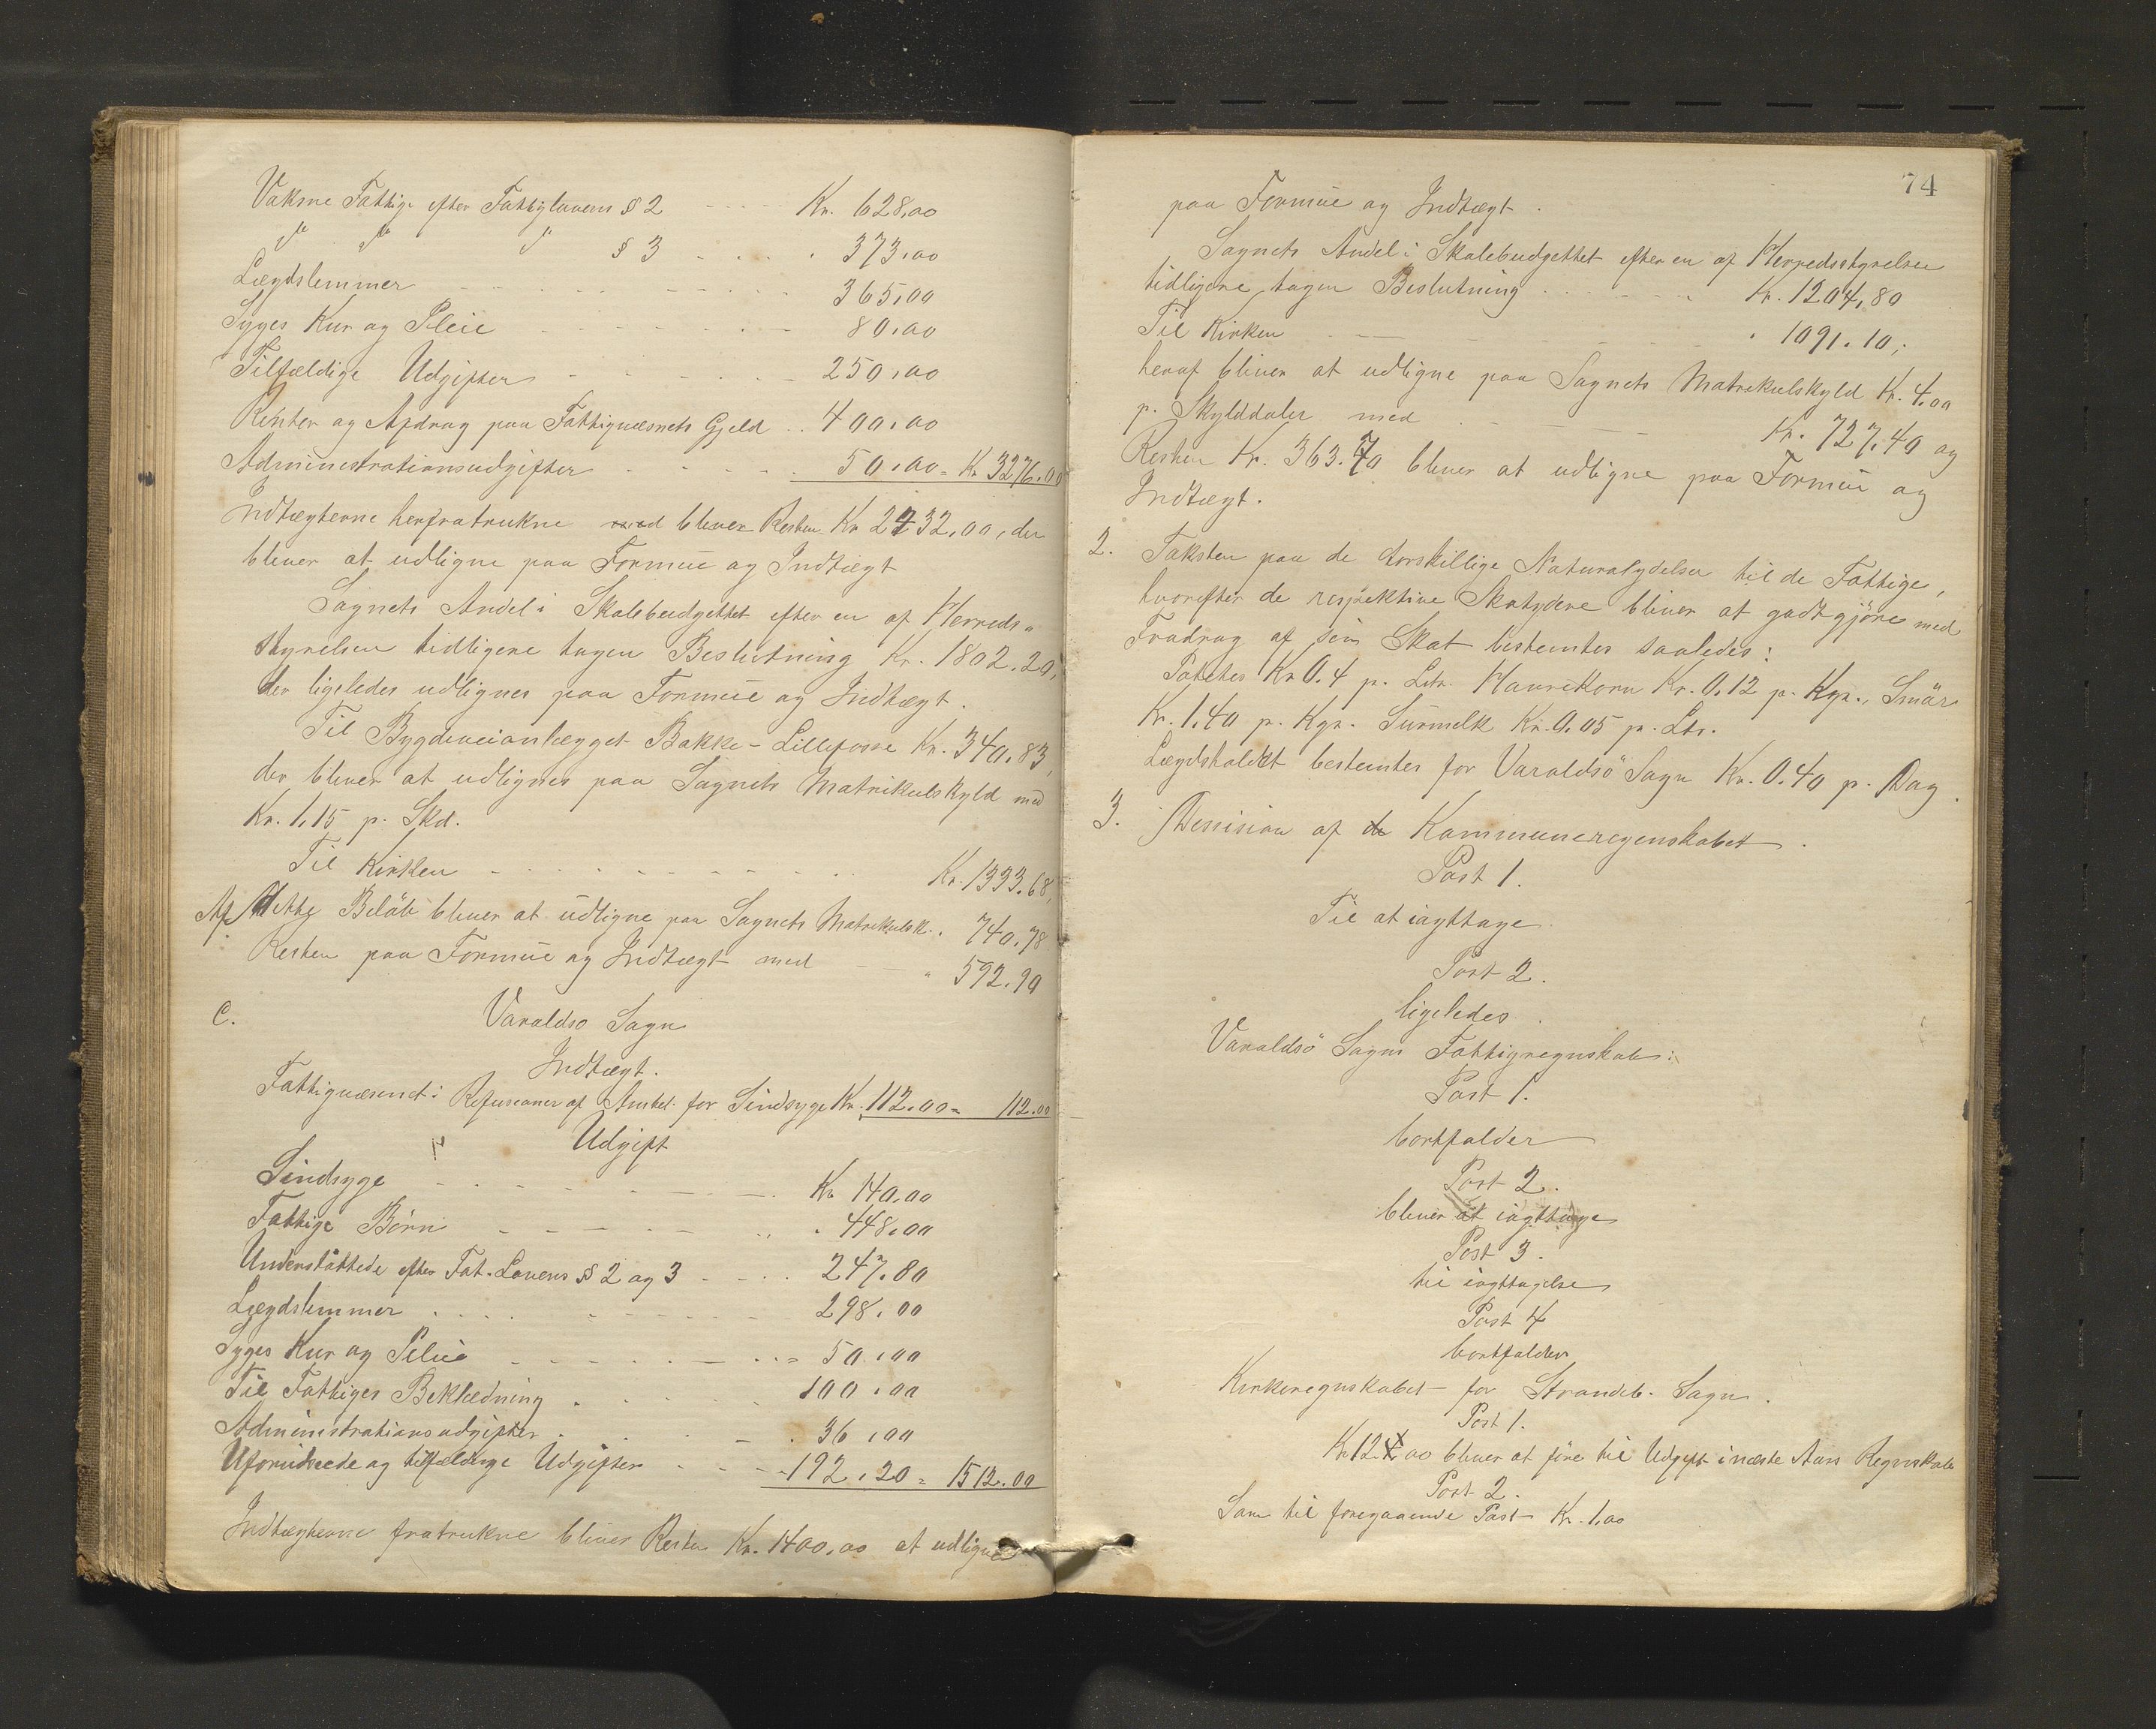 Voksne Fattige efter Fattiglovens § 2 - - - Kr. 628,00
" " " § 3 - . . . 373,00
Lægdslemmer - - - - - - 365,00
Syges Kur og Pleie - - - - - - 80,00
Tilfældige Udgifter - - - - - 250,00
Renter og Afdrag paa Fattigvæsnets Gjeld . . 400,00
Administrationsudgifter - - - - . 50,00 = Kr 3276.00
Indtægterne herfratrukne bliver Resten Kr 2432,00, der
bliver at udligne paa Formue og Indtægt
Sognets Andel i Skolebudgettet efter en af Herreds-
styrelsen tidligere tagen Beslutning Kr. 1802.20,
der ligeledes udlignes paa Formue og Indtægt.
Til Bygdeveianlægget Bakke-Lillefosse Kr. 340,83,
der bliver at udlignes paa Sognets Matrikulskyld med
Kr. 1,15 p. Skd.
Til Kirken - - - - - - - - Kr. 1333.68,
Af dette Beløb bliver at udligne paa Sognets Matrikulsk. . 740,78
Resten paa Formue og Indtægt med - - " 592.90
C. Varaldsø Sogn
Indtægt.
Fattigvæsenet: Refusioner af Amtet for Sindsyge Kr. 112.00 = 112.00
Udgift
Sindsyge - - - - - - - Kr 140,00
Fattige Børn - - - - - - . 448,00
Understøttede efter Fat. Lovens §§ 2 og 3 - . . . 247.80
Lægdslemmer . . . - - - - 298.00
Syges Kur og Pleie - - - - - - 50,00
Til Fattiges Beklædning . . . . . 100,00
Administrationsudgifter . . . - . 36,00
Uforudseede og tilfældige Udgifter - - - 192.20 = 1512.00
Indtægterne fratrukne bliver Resten Kr. 1400,00 at udligne
74
paa Formue og Indtægt.
Sognets Andel i Skolebudgettet efter en af Herredsstyrelsen
tidligere tagen Beslutning . . . . . Kr. 1204,80
Til Kirken - - - - - - - . 1091.10;
heraf bliver at udligne paa Sognets Matrikulskyld Kr. 4.00
p. Skylddaler med . - - - Kr. 727.40 og
Resten Kr. 363.70 bliver at udligne paa Formue og
Indtægt.
2. Taksten paa de forskillige Naturalydelser til de Fattige,
hvorefter de respektive Skatydere bliver at godtgjøres med
Fradrag af sin Skat bestemtes saaledes:
Poteter Kr 0.4 p. Ltr. Havrekorn Kr. 0,12 p. Kgr., Smør
Kr. 1.40 p. Kgr. Surmelk Kr. 0.05 p. Ltr.
Lægdsholdet bestemtes for Varaldsö Sogn Kr. 0.40 p. Dag.
3. Desision af de Kommuneregnskabet.
Post 1.
Til at iagttage
Post 2.
ligeledes.
Varaldsö Sogns Fattigregnskab:
Post 1.
bortfalder
Post 2.
bliver at iagttage
Post 3.
til iagttagelse
Post 4
bortfalder
Kirkeregnskabet for Strandeb. Sogn.
Post 1.
Kr 12.00 bliver at føre til Udgift i næste Aars Regnskab
Post 2.
Som til foregaaende Post Kr. 1,00